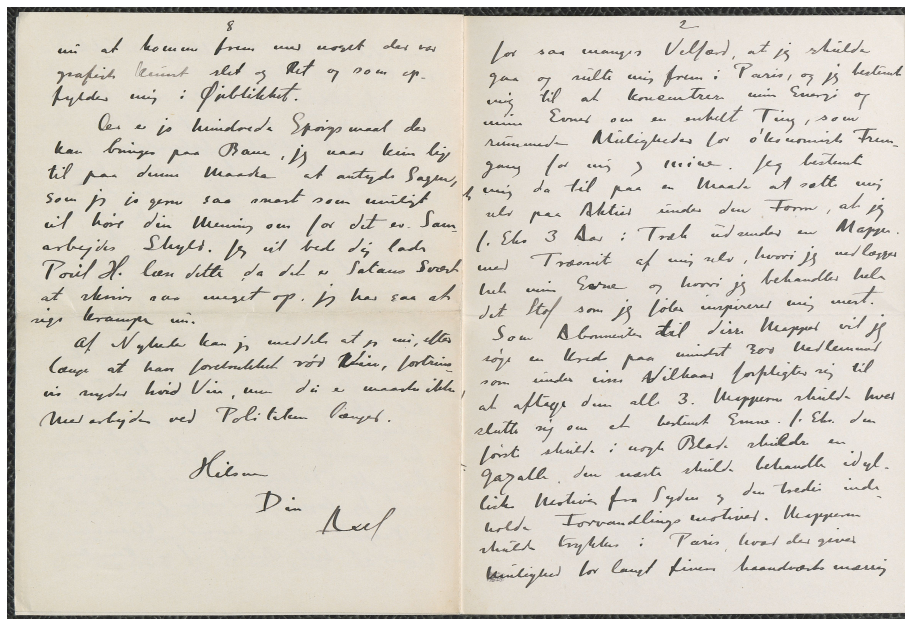 8
nu at komme frem med noget der var
grafisk kunst slet og ret og som op-
fylder mig i Øjeblikket.
Der er jo hundrede Spørgsmaal der
kan bringes paa Bane, jeg naar kun lige
til paa denne Maade at antyde Sagen,
som jeg jo gerne saa snart som muligt
vil høre din Mening om for det ev. Sam-
arbejdes Skyld. Jeg vil bede dig lade
Poul H. læse dette da det er Satans svært
at skrive saa meget op. jeg har saa at
sige krampe nu.
Af Nyheder kan jeg meddele at jeg nu, efter
længe at have foretrukket rød Vin, fortrins-
vis nyder hvid Vin, men du er maaske ikke
Medarbejder ved Politiken længer.
Hilsen
Din
Axel
2
for saa manges Velfærd, at jeg skulde
gaa og sulte mig frem i Paris, og jeg bestemt
mig til at koncentrere min Energi og
mine Evner om en enkelt Ting, som
rummede Muligheder for økonomisk Frem-
gang for mig og mine. Jeg bestemte
mig da til paa en Maade at sætte mig
selv paa Aktier under den Form, at jeg
f. Eks 3 Aar i Træk udsender en Mappe
med Træsnit af mig selv, hvori jeg nedlægger
hele min Evne og hvori jeg behandler hele
det Stof som jeg føler inspirerer mig mest.
Som Abonnenter til disse Mapper vil jeg
søge en Kreds paa mindst 300 Medlemmer
som under visse Vilkaar forpligter sig til
at aftage dem alle 3. Mapperne skulde hver
slutte sig om et bestemt Emne. f. Eks. den
første skulde i nogle Blade skildre en
gazelle, den næste skulde behandle idyl-
liske Motiver fra Syden og den tredie inde-
holde Forvandlingsmotiver. Mapperne
skulde trykkes i Paris, hvad der giver
Mulighed for langt finere haandværksmæssig